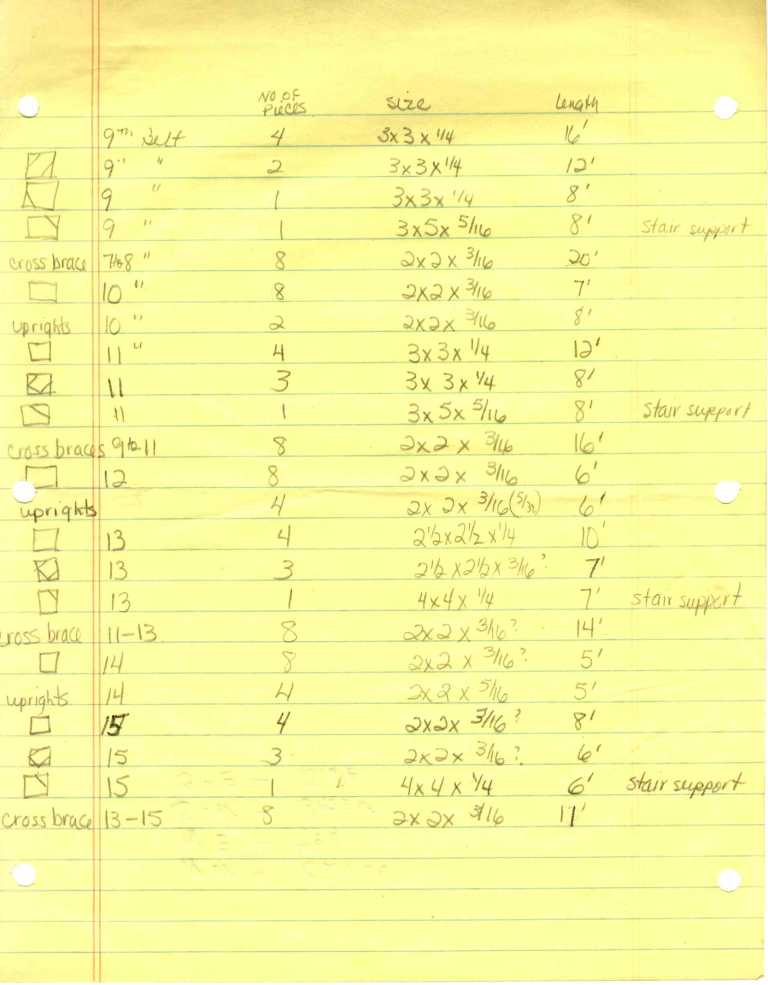 No. of Pieces Size Length
9th Belt 4 3x3x 1/4 16'
9" " 2 3x3x1/4 12'
9 " 1 3x3x 1/4 8'
9 " 1 3x5x 5/16 8' Stair support
cross brace 7to8 " 8 2x2x 3/16 20'
10 " 8 2x2x 3/16 7'
uprights 10 " 2 2x2x 3/16 8'
11 " 4 3x3x 1/4 12'
11 3 3x 3x 1/4 8'
11 1 3x5x 5/16 8' Stair support
cross braces 9 to 11 8 2x2 x 3/16 16'
12 8 2x2x 3/16 6'
uprights 4 2x 2x 3/16 (5/32) 6'
13 4 2 1/2 x 2 1/2 x 1/4 10'
13 3 2 1/2 x 2 1/2 x 3/16 ? 7'
13 1 4x4x 1/4 7' Stair support
cross brace 11-13 8 2x2x 3/16 ? 14'
14 8 2x2 x 3/16 ? 5'
uprights 14 4 2x2 x 5/16 5'
15 4 2x2x 3/16 ? 8'
15 3 2x2x 3/16 ? 6'
15 1 4x4 x 1/4 6' Stair support
cross brace 13-15 8 2x2x 3/16 11'